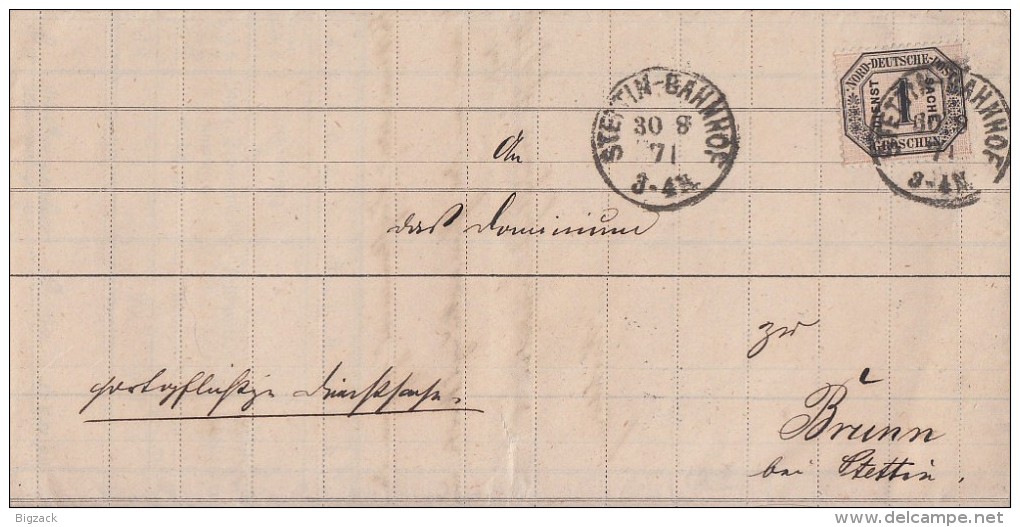 NORD-DEUTSCHE-POST
DIENST SACHE
1
GROSCHEN
STETTIN-BAHNHOF
30 8
71
3-4N
STETTIN-BAHNHOF
30 8
71
3-4N
An
das Dominium
zu
portopflichtige Dienstsache.
Brunn
bei Stettin.
Bigzack
www.delcampe.net